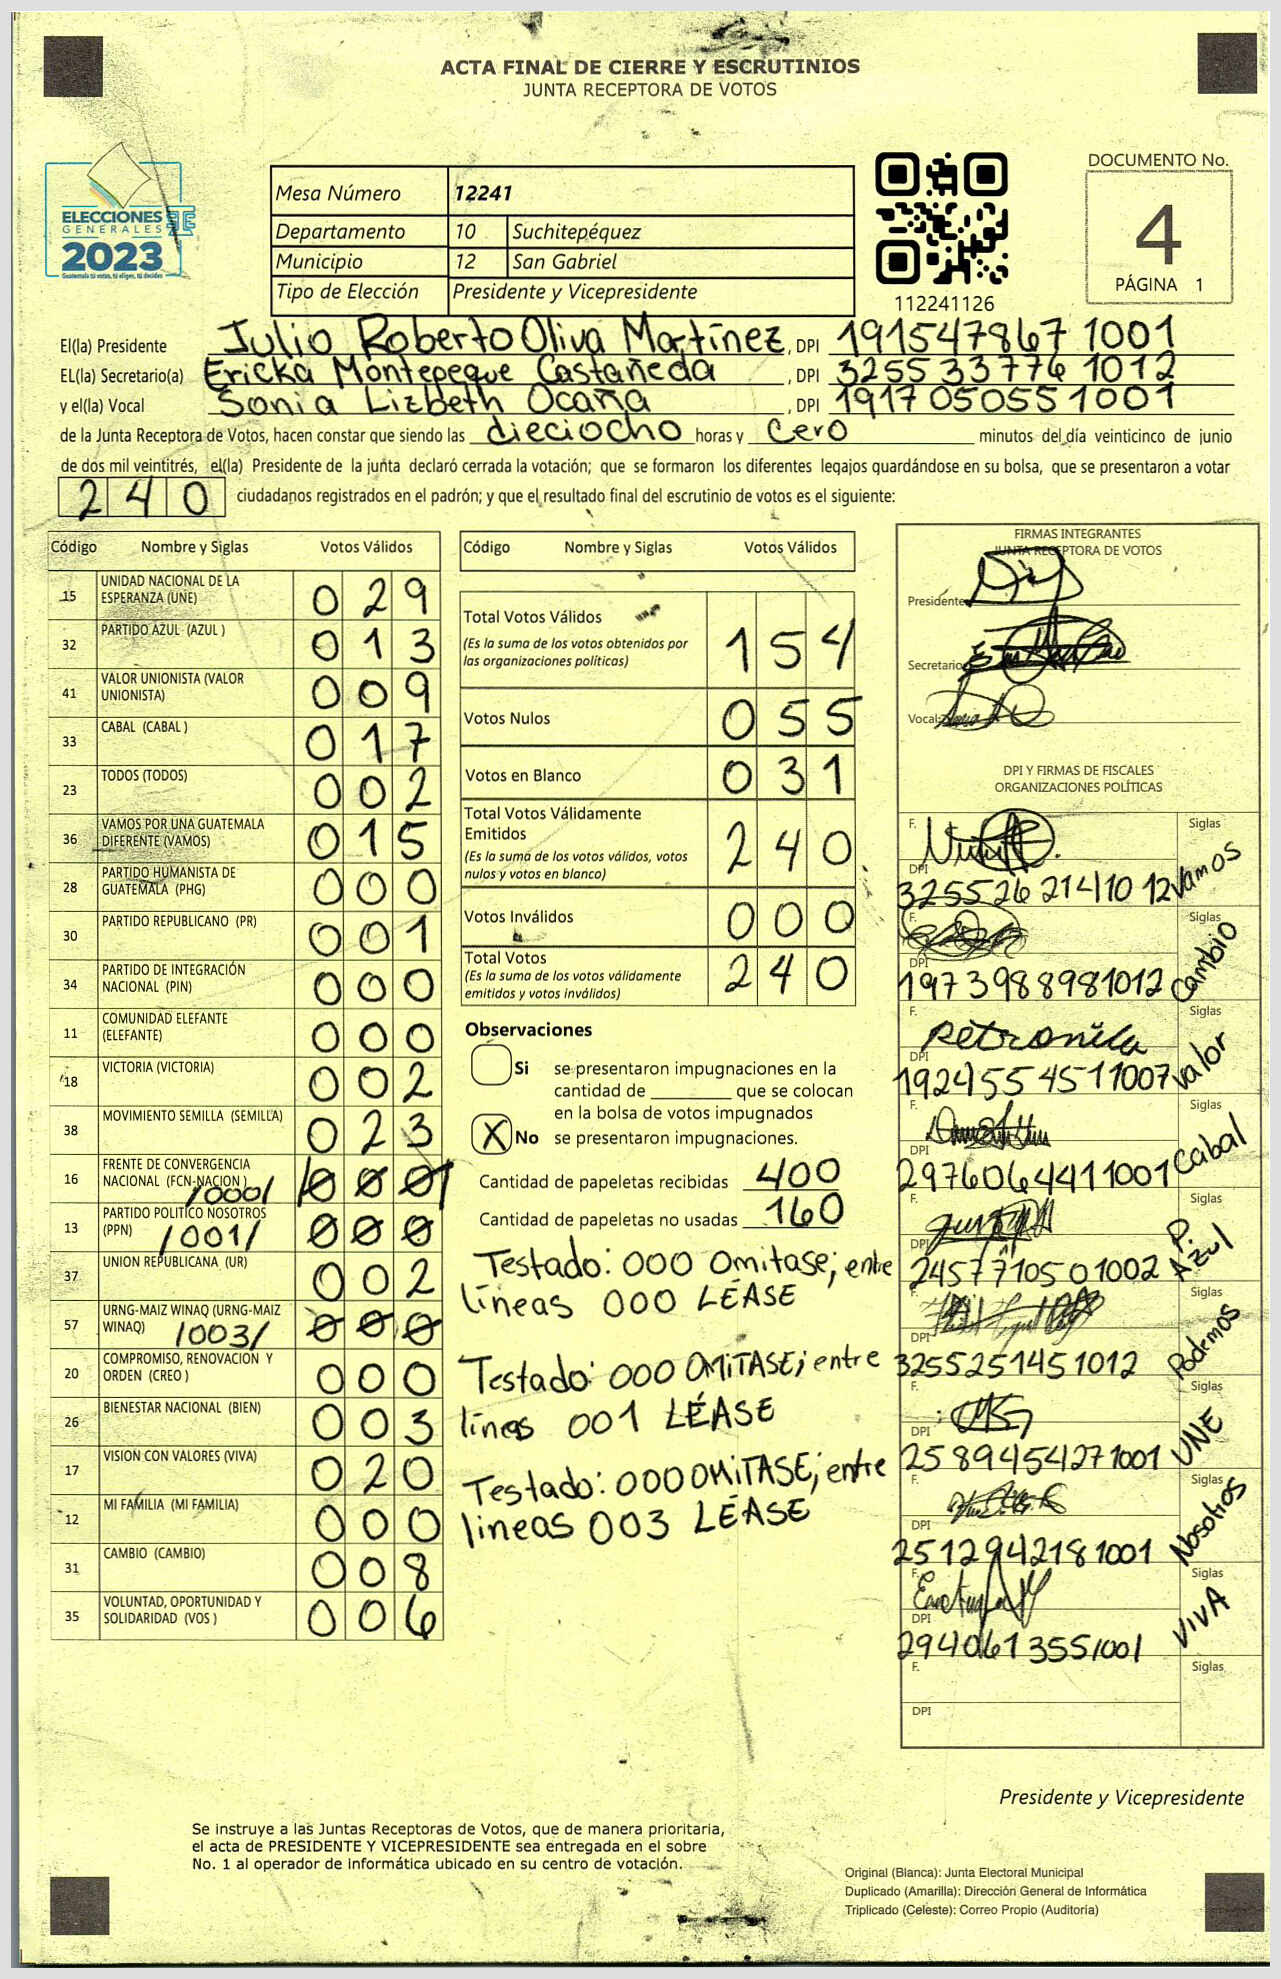 ACTA FINAL DE CIERRE Y ESCRUTINIOS
JUNTA RECEPTORA DE VOTOS
ELECCIONES
GENERALES
2023
Guatemala tú votas, tú eliges, tú decides
Mesa Número 12241
Departamento 10 Suchitepéquez
Municipio 12 San Gabriel
Tipo de Elección Presidente y Vicepresidente
112241126
DOCUMENTO No.
4
PÁGINA 1
El(la) Presidente Julio Roberto Oliva Martínez, DPI 191547867 1001
EL(la) Secretario(a) Ericka Montepeque Castañeda, DPI 3255 33776 1012
y el(la) Vocal Sonia Lizbeth Ocaña, DPI 1917 05055 1001
de la Junta Receptora de Votos, hacen constar que siendo las dieciocho horas y cero minutos del día veinticinco de junio
de dos mil veintitrés, el(la) Presidente de la junta declaró cerrada la votación; que se formaron los diferentes legajos guardándose en su bolsa, que se presentaron a votar
240 ciudadanos registrados en el padrón; y que el resultado final del escrutinio de votos es el siguiente:
Código Nombre y Siglas Votos Válidos
15 UNIDAD NACIONAL DE LA ESPERANZA (UNE) 029
32 PARTIDO AZUL (AZUL ) 013
41 VALOR UNIONISTA (VALOR UNIONISTA) 009
33 CABAL (CABAL ) 017
23 TODOS (TODOS) 002
36 VAMOS POR UNA GUATEMALA DIFERENTE (VAMOS) 015
28 PARTIDO HUMANISTA DE GUATEMALA (PHG) 000
30 PARTIDO REPUBLICANO (PR) 001
34 PARTIDO DE INTEGRACIÓN NACIONAL (PIN) 000
11 COMUNIDAD ELEFANTE (ELEFANTE) 000
18 VICTORIA (VICTORIA) 002
38 MOVIMIENTO SEMILLA (SEMILLA) 023
16 FRENTE DE CONVERGENCIA NACIONAL (FCN-NACION ) /000/ 000
13 PARTIDO POLITICO NOSOTROS (PPN) /001/ 000
37 UNION REPUBLICANA (UR) 002
57 URNG-MAIZ WINAQ (URNG-MAIZ WINAQ) /003/ 000
20 COMPROMISO, RENOVACION Y ORDEN (CREO ) 000
26 BIENESTAR NACIONAL (BIEN) 003
17 VISION CON VALORES (VIVA) 020
12 MI FAMILIA (MI FAMILIA) 000
31 CAMBIO (CAMBIO) 008
35 VOLUNTAD, OPORTUNIDAD Y SOLIDARIDAD (VOS ) 006
Código Nombre y Siglas Votos Válidos
Total Votos Válidos 154
(Es la suma de los votos obtenidos por
las organizaciones políticas)
Votos Nulos 055
Votos en Blanco 031
Total Votos Válidamente
Emitidos 240
(Es la suma de los votos válidos, votos
nulos y votos en blanco)
Votos Inválidos 000
Total Votos 240
(Es la suma de los votos válidamente
emitidos y votos inválidos)
Observaciones
Si se presentaron impugnaciones en la
cantidad de ________ que se colocan
en la bolsa de votos impugnados
X No se presentaron impugnaciones.
Cantidad de papeletas recibidas 400
Cantidad de papeletas no usadas 160
Testado: 000 Omitase; entre
líneas 000 LÉASE
Testado: 000 OMITASE; entre
líneas 001 LÉASE
Testado: 000 OMITASE; entre
lineas 003 LÉASE
FIRMAS INTEGRANTES
JUNTA RECEPTORA DE VOTOS
Presidente
Secretario
Vocal
DPI Y FIRMAS DE FISCALES
ORGANIZACIONES POLÍTICAS
F. Siglas
DPI
3255 26 21410 12 Vamos
F. Siglas
DPI
1973988981012 Cambio
F. Siglas
Petronila
DPI
1924554511007 Valor
F. Siglas
DPI
2976064411001 Cabal
F. Siglas
DPI
2457710501002 P. Azul
F. Siglas
DPI
3255251451012 Podemos
F. Siglas
DPI
2589454271001 UNE
F. Siglas
DPI
2512942181001 Nosotros
F. Siglas
DPI
2940613551001 VIVA
F. Siglas
DPI
Presidente y Vicepresidente
Se instruye a las Juntas Receptoras de Votos, que de manera prioritaria,
el acta de PRESIDENTE Y VICEPRESIDENTE sea entregada en el sobre
No. 1 al operador de informática ubicado en su centro de votación.
Original (Blanca): Junta Electoral Municipal
Duplicado (Amarilla): Dirección General de Informática
Triplicado (Celeste): Correo Propio (Auditoría)